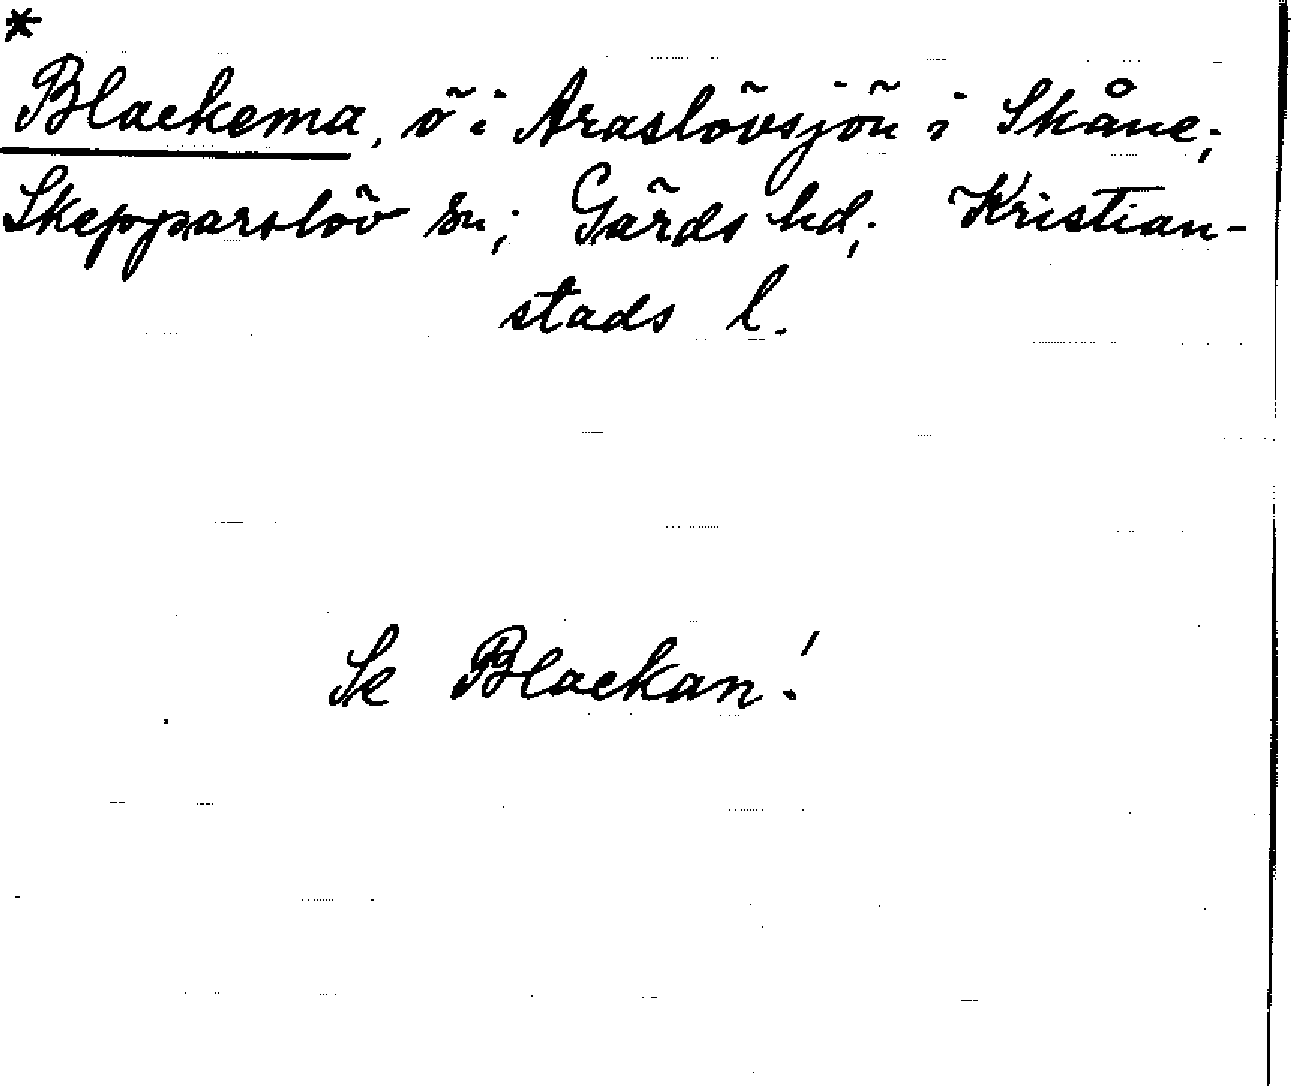 *
Blackema, ö i Araslövsjön i Skåne;
Skepparslöv sn; Gärds hd; Kristian-
stads l.
Se Blackan!